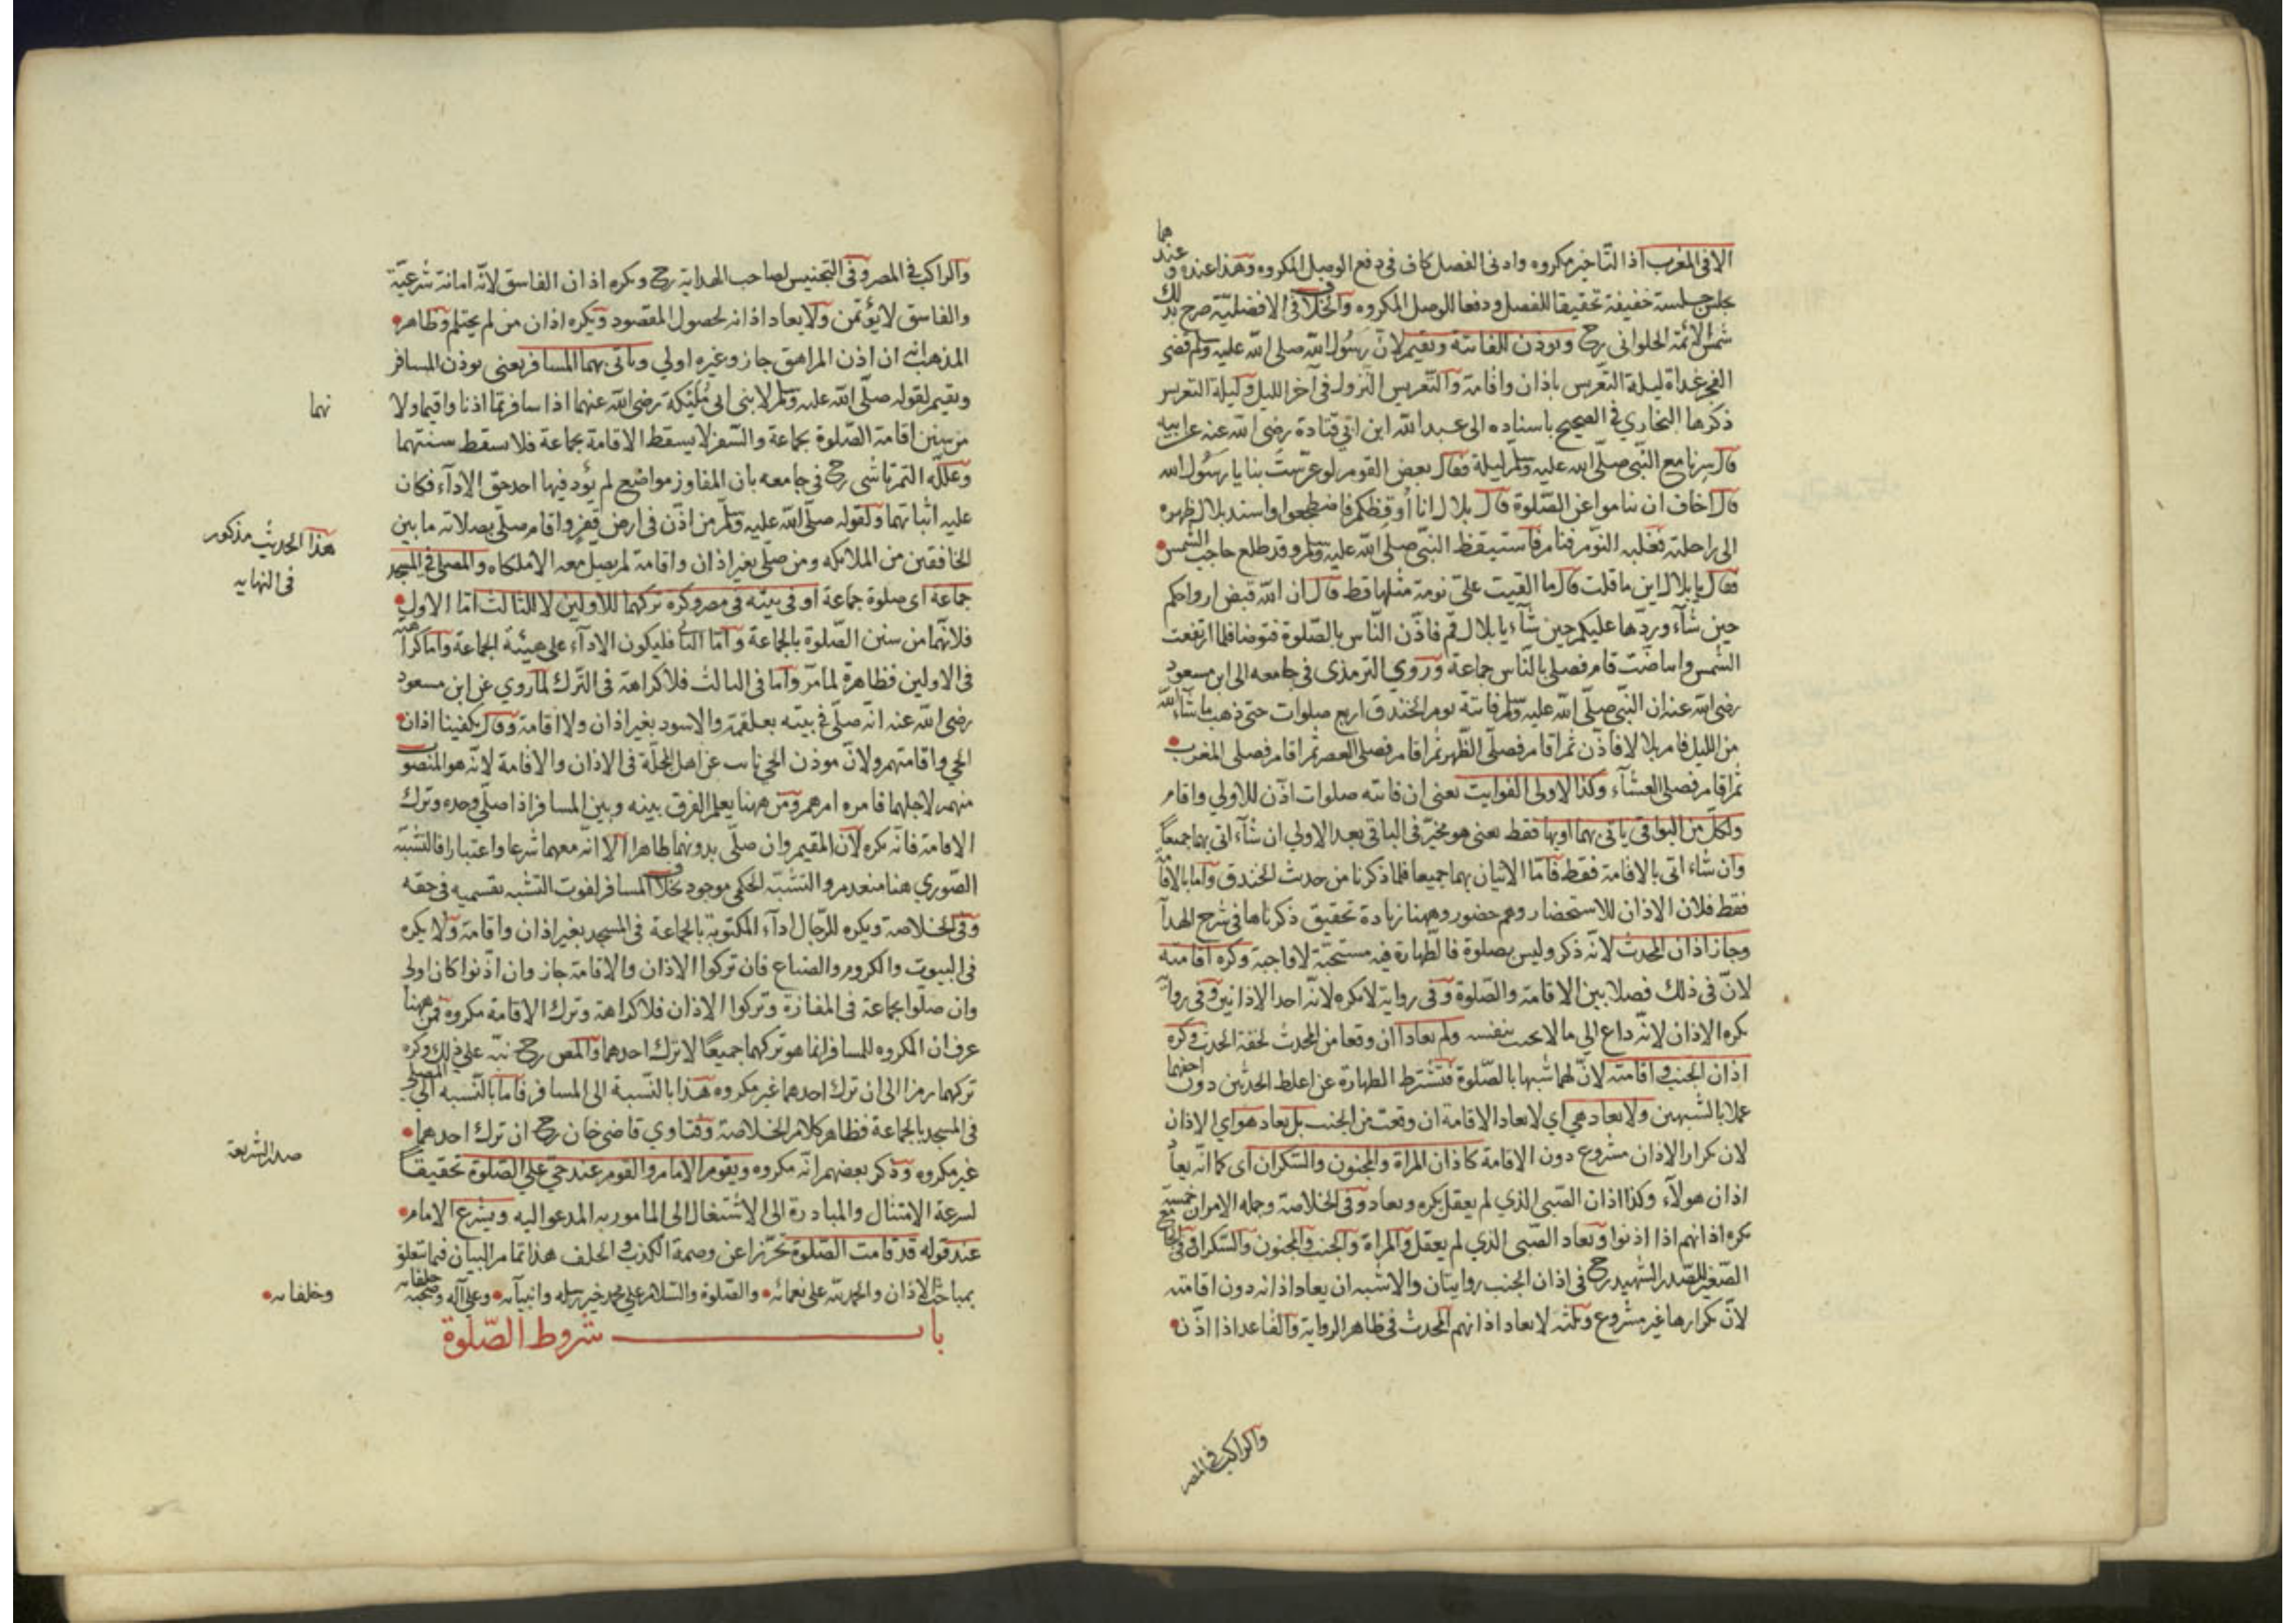 الا في المغرب اذا التاخير مكروه وادنى الفصل كاف في دفع الوصل المكروه وهذا عنده وعندهما
يجلس جلسة خفيفة تحقيقا للفصل ودفعا للوصل المكروه والخلاف في الافضلية صرح بذلك
شمس الائمة الحلواني رح ويوذن للفائتة ويقيم لان رسول الله صلى الله عليه وسلم قضى
الفجر غداة ليلة التعريس باذان واقامة والتعريس النزول في آخر الليل وليلة التعريس
ذكرها البخاري في الصحيح باسناده الى عبد الله ابن ابي قتادة رضي الله عنه عن ابيه
قال سرنا مع النبي صلى الله عليه وسلم ليلة فقال بعض القوم لو عرست بنا يا رسول الله
قال اخاف ان تناموا عن الصلوة قال بلال انا أوقظكم فاضطجعوا واسند بلال ظهره
الى راحلته فغلبه النوم فنام فاستيقظ النبي صلى الله عليه وسلم وقد طلع حاجب الشمس
فقال يا بلال اين ما قلت قال ما القيت علي نومة مثلها قط قال ان الله قبض ارواحكم
حين شآء وردها عليكم حين شآء يا بلال قم فاذن الناس بالصلوة فتوضا فلما ارتفعت
الشمس وابياضت قام فصلى بالناس جماعة وروي الترمذي في جامعه الى ابن مسعود
رضي الله عنه ان النبي صلى الله عليه وسلم فاتته يوم الخندق اربع صلوات حتى ذهب ما شآء الله
من الليل فامر بلالا فاذن ثم اقام فصلى الظهر ثم اقام فصلى العصر ثم اقام فصلى المغرب
ثم اقام فصلى العشآء وكذا لاولى الفوايت يعني ان فاتته صلوات اذن للاولي واقام
ولكل من البواقي ياتي بهما او بها فقط يعني هو مخير في الباقي بعد الاولي ان شآء اتى بهما جميعاً
وان شاء اتى بالاقامة فقط فاما الاتيان بهما جميعا فلما ذكرنا من حديث الخندق واما بالاقامة
فقط فلان الاذان للاستحضار وهم حضور وههنا زيادة تحقيق ذكرناها في شرح الهدآ
وجاز اذان المحدث لانه ذكر وليس بصلوة فالطهارة فيه مستحبة لا واجبة وكره اقامته
لان في ذلك فصلا بين الاقامة والصلوة وفي رواية لا يكره لانه احد الاذانين وفي رواية
يكره الاذان لانه داع الى ما لا يجيب بنفسه ولم يعادا ان وقعا من المحدث لخفة الحدث وكره
اذان الجنب واقامته لان لهما شبها بالصلوة فتشترط الطهارة عن اغلظ الحدثين دون اخفهما
عملا بالشبهين ولا يعاد هي اي لا يعاد الاقامة ان وقعت من الجنب بل يعاد هو اي الاذان
لان تكرار الاذان مشروع دون الاقامة كاذان المراة والمجنون والسكران اي كما انه يعاد
اذان هولآء وكذا اذان الصبي الذي لم يعقل يكره ويعاد وفي الخلاصة وجمله الامران خمسة
يكره اذانهم اذا اذنوا ويعاد الصبي الذي لم يعقل والمراة والجنب والمجنون والسكران وفي الجامع
الصغير للصدر الشهيد رح في اذان الجنب روايتان والاشبه ان يعاد اذانه دون اقامته
لان تكرارها غير مشروع وثلثة لا يعاد اذانهم المحدث في ظاهر الرواية والقاعد اذا اذن
والراكب في المصر
والراكب في المصر وفي التجنيس لصاحب الهداية رح ويكره اذان الفاسق لانه امانة شرعية
والفاسق لا يؤتمن ولا يعاد اذانه لحصول المقصود ويكره اذان من لم يحتلم وظاهر
المذهب ان اذن المراهق جاز وغيره اولي وياتي بهما المسافر يعني يوذن المسافر
ويقيم لقوله صلى الله عليه وسلم لابني ابي مليكة رضي الله عنهما اذا سافرتما اذنا واقيما ولا
نهما
من سنن اقامة الصلوة بجماعة والسفر لا يسقط الاقامة بجماعة فلا يسقط سنتهما
وعلله التمرتاشي رح في جامعه بان المفاوز مواضع لم يؤد فيها احد حق الادآء فكان
عليه اثباتهما ولقوله صلى الله عليه وسلم من اذن في ارض قفر واقام صلى بصلاته ما بين
هذا الحديث مذكور
في النهايه
الخافقين من الملائكه ومن صلى بغير اذان واقامة لم يصل معه الا ملكاه والمصلى في المسجد
جماعة اي صلوة جماعة او في بيته في مصر وكره تركهما للاولين لا للثالث اما الاول
فلانهما من سنن الصلوة بالجماعة واما الثاني فليكون الادآء على هيئة الجماعة واما كراهته
في الاولين فظاهرة لما مر واما في الثالث فلا كراهة في الترك لما روي عن ابن مسعود
رضي الله عنه انه صلى في بيته بعلقمة والاسود بغير اذان ولا اقامة وقال يكفينا اذان
الحي واقامتهم ولان موذن الحي نايب عن اهل المحلة في الاذان والاقامة لانه هو المنصوب
منهم لاجلهما فامره امرهم ومن ههنا يعلم الفرق بينه وبين المسافر اذا صلى وحده وترك
الاقامة فانه يكره لان المقيم وان صلى بدونهما ظاهرا الا انه معهما شرعا واعتبارا فالتشبه
الصوري هنا منعدم والتشبه الحكمي موجود بخلاف المسافر لفوت التشبه بقسميه في حقه
وفي الخلاصة ويكره للرجال ادآء المكتوبة بالجماعة في المسجد بغير اذان واقامة ولا يكره
في البيوت والكروم والضياع فان تركوا الاذان والاقامة جاز وان اذنوا كان اولى
وان صلوا بجماعة في المفازة وتركوا الاذان فلا كراهة وترك الاقامة مكروه فمن ههنا
عرف ان المكروه للمسافر انما هو تركهما جميعاً لا ترك احدهما والمص رح نبه على ذلك وكره
تركهما رمزا الى ان ترك احدهما غير مكروه هذا بالنسبة الى المسافر فاما بالنسبه الى المصلى
في المسجد بالجماعة فظاهر كلام الخلاصة وفتاوي قاضي خان رح ان ترك احدهما
صدر الشريعة
غير مكروه وذكر بعضهم انه مكروه ويقوم الامام والقوم عند حي على الصلوة تحقيقاً
لسرعة الامتثال والمبادرة الى الاشتغال الى المامور به المدعو اليه ويشرع الامام
عند قوله قد قامت الصلوة تحرزا عن وصمة الكذب والخلف هذا تمام البيان فيما يتعلق
بمباحث الاذان والحمد لله على نعمائه والصلوة والسلام على محمد خير رسله وانبيآئه وعلى آله وصحبه
وخلفائه
باب شروط الصلوة